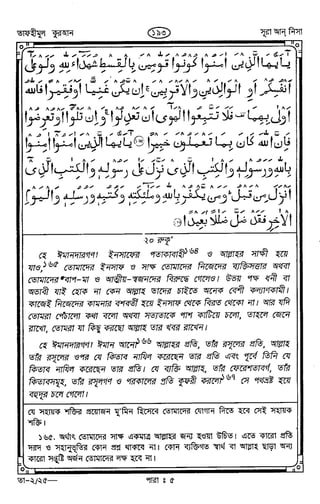 তাফহীমুল কুরআন
১৯৩
সূরা আন্ নিসা
يٰٓاَيُّهَا الَّذِيْنَ اٰمَنُوْا كُوْنُوْا قَوّٰمِيْنَ بِالْقِسْطِ شُهَدَآءَ لِلّٰهِ وَلَوْ عَلٰٓى
اَنْفُسِكُمْ اَوِ الْوَالِدَيْنِ وَالْاَقْرَبِيْنَ ۚ اِنْ يَّكُنْ غَنِيًّا اَوْ فَقِيْرًا فَاللّٰهُ
اَوْلٰى بِهِمَا ۟ فَلَا تَتَّبِعُوا الْهَوٰٓى اَنْ تَعْدِلُوْا ۚ وَاِنْ تَلْوٗٓا اَوْ تُعْرِضُوْا
فَاِنَّ اللّٰهَ كَانَ بِمَا تَعْمَلُوْنَ خَبِيْرًا ۞ يٰٓاَيُّهَا الَّذِيْنَ اٰمَنُوْٓا اٰمِنُوْا
بِاللّٰهِ وَرَسُوْلِهٖ وَالْكِتٰبِ الَّذِيْ نَزَّلَ عَلٰى رَسُوْلِهٖ وَالْكِتٰبِ الَّذِيْٓ
اَنْزَلَ مِنْ قَبْلُ ۚ وَمَنْ يَّكْفُرْ بِاللّٰهِ وَمَلٰٓئِكَتِهٖ وَكُتُبِهٖ وَرُسُلِهٖ وَالْيَوْمِ
الْاٰخِرِ فَقَدْ ضَلَّ ضَلٰلًاۢ بَعِيْدًا ۞
২০ রুকূ'
হে ঈমানদারগণ! ইনসাফের পতাকাবাহী১৬৪ ও আল্লাহর সাক্ষী হয়ে
যাও,১৬৫ তোমাদের ইনসাফ ও সাক্ষ্য তোমাদের নিজেদের ব্যক্তিসত্তার অথবা
তোমাদের বাপ-মা ও আত্মীয়-স্বজনদের বিরুদ্ধে গেলেও। উভয় পক্ষ ধনী বা
অভাবী যাই হোক না কেন আল্লাহ তাদের চাইতে অনেক বেশী কল্যাণকামী।
কাজেই নিজেদের কামনার বশবর্তী হয়ে ইনসাফ থেকে বিরত থেকো না। আর যদি
তোমরা পেঁচালো কথা বলো অথবা সত্যতাকে পাশ কাটিয়ে চলো, তাহলে জেনে
রাখো, তোমরা যা কিছু করছো আল্লাহ তার খবর রাখেন।
হে ঈমানদারগণ! ঈমান আনো১৬৬ আল্লাহর প্রতি, তাঁর রসূলের প্রতি, আল্লাহ
তাঁর রসূলের ওপর যে কিতাব নাযিল করেছেন তার প্রতি এবং পূর্বে তিনি যে
কিতাব নাযিল করেছেন তার প্রতি। যে ব্যক্তি আল্লাহ, তাঁর ফেরেশতাবর্গ, তাঁর
কিতাবসমূহ, তাঁর রসূলগণ ও পরকালের প্রতি কুফরী করলো১৬৭ সে পথভ্রষ্ট হয়ে
বহুদূর চলে গেলো।
যে সহায়ক শক্তির প্রয়োজন মু'মিন হিসেবে তোমাদের যোগান দিতে হবে সেই সহায়ক
শক্তি।
১৬৫. অর্থাৎ তোমাদের সাক্ষ্য একমাত্র আল্লাহর জন্য হওয়া উচিত। এতে কারো প্রতি
দরদ ও সহানুভূতির কোন প্রশ্ন থাকবে না। কোন ব্যক্তিগত স্বার্থ বা আল্লাহ ছাড়া অন্য
কারো সন্তুষ্টি অর্জন তোমাদের লক্ষ হবে না।
তা-২/২৫—
পারা : ৫